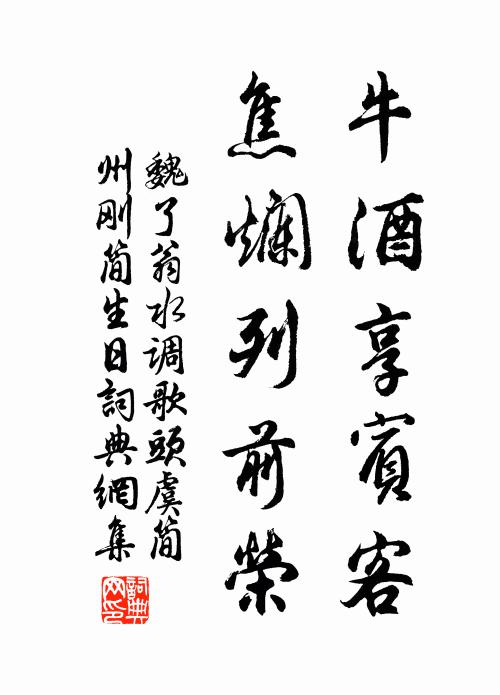 牛酒享賓客
焦爛列前榮
魏了翁水调歌頭虞简
州刚简生日詞典網集
詞典网印